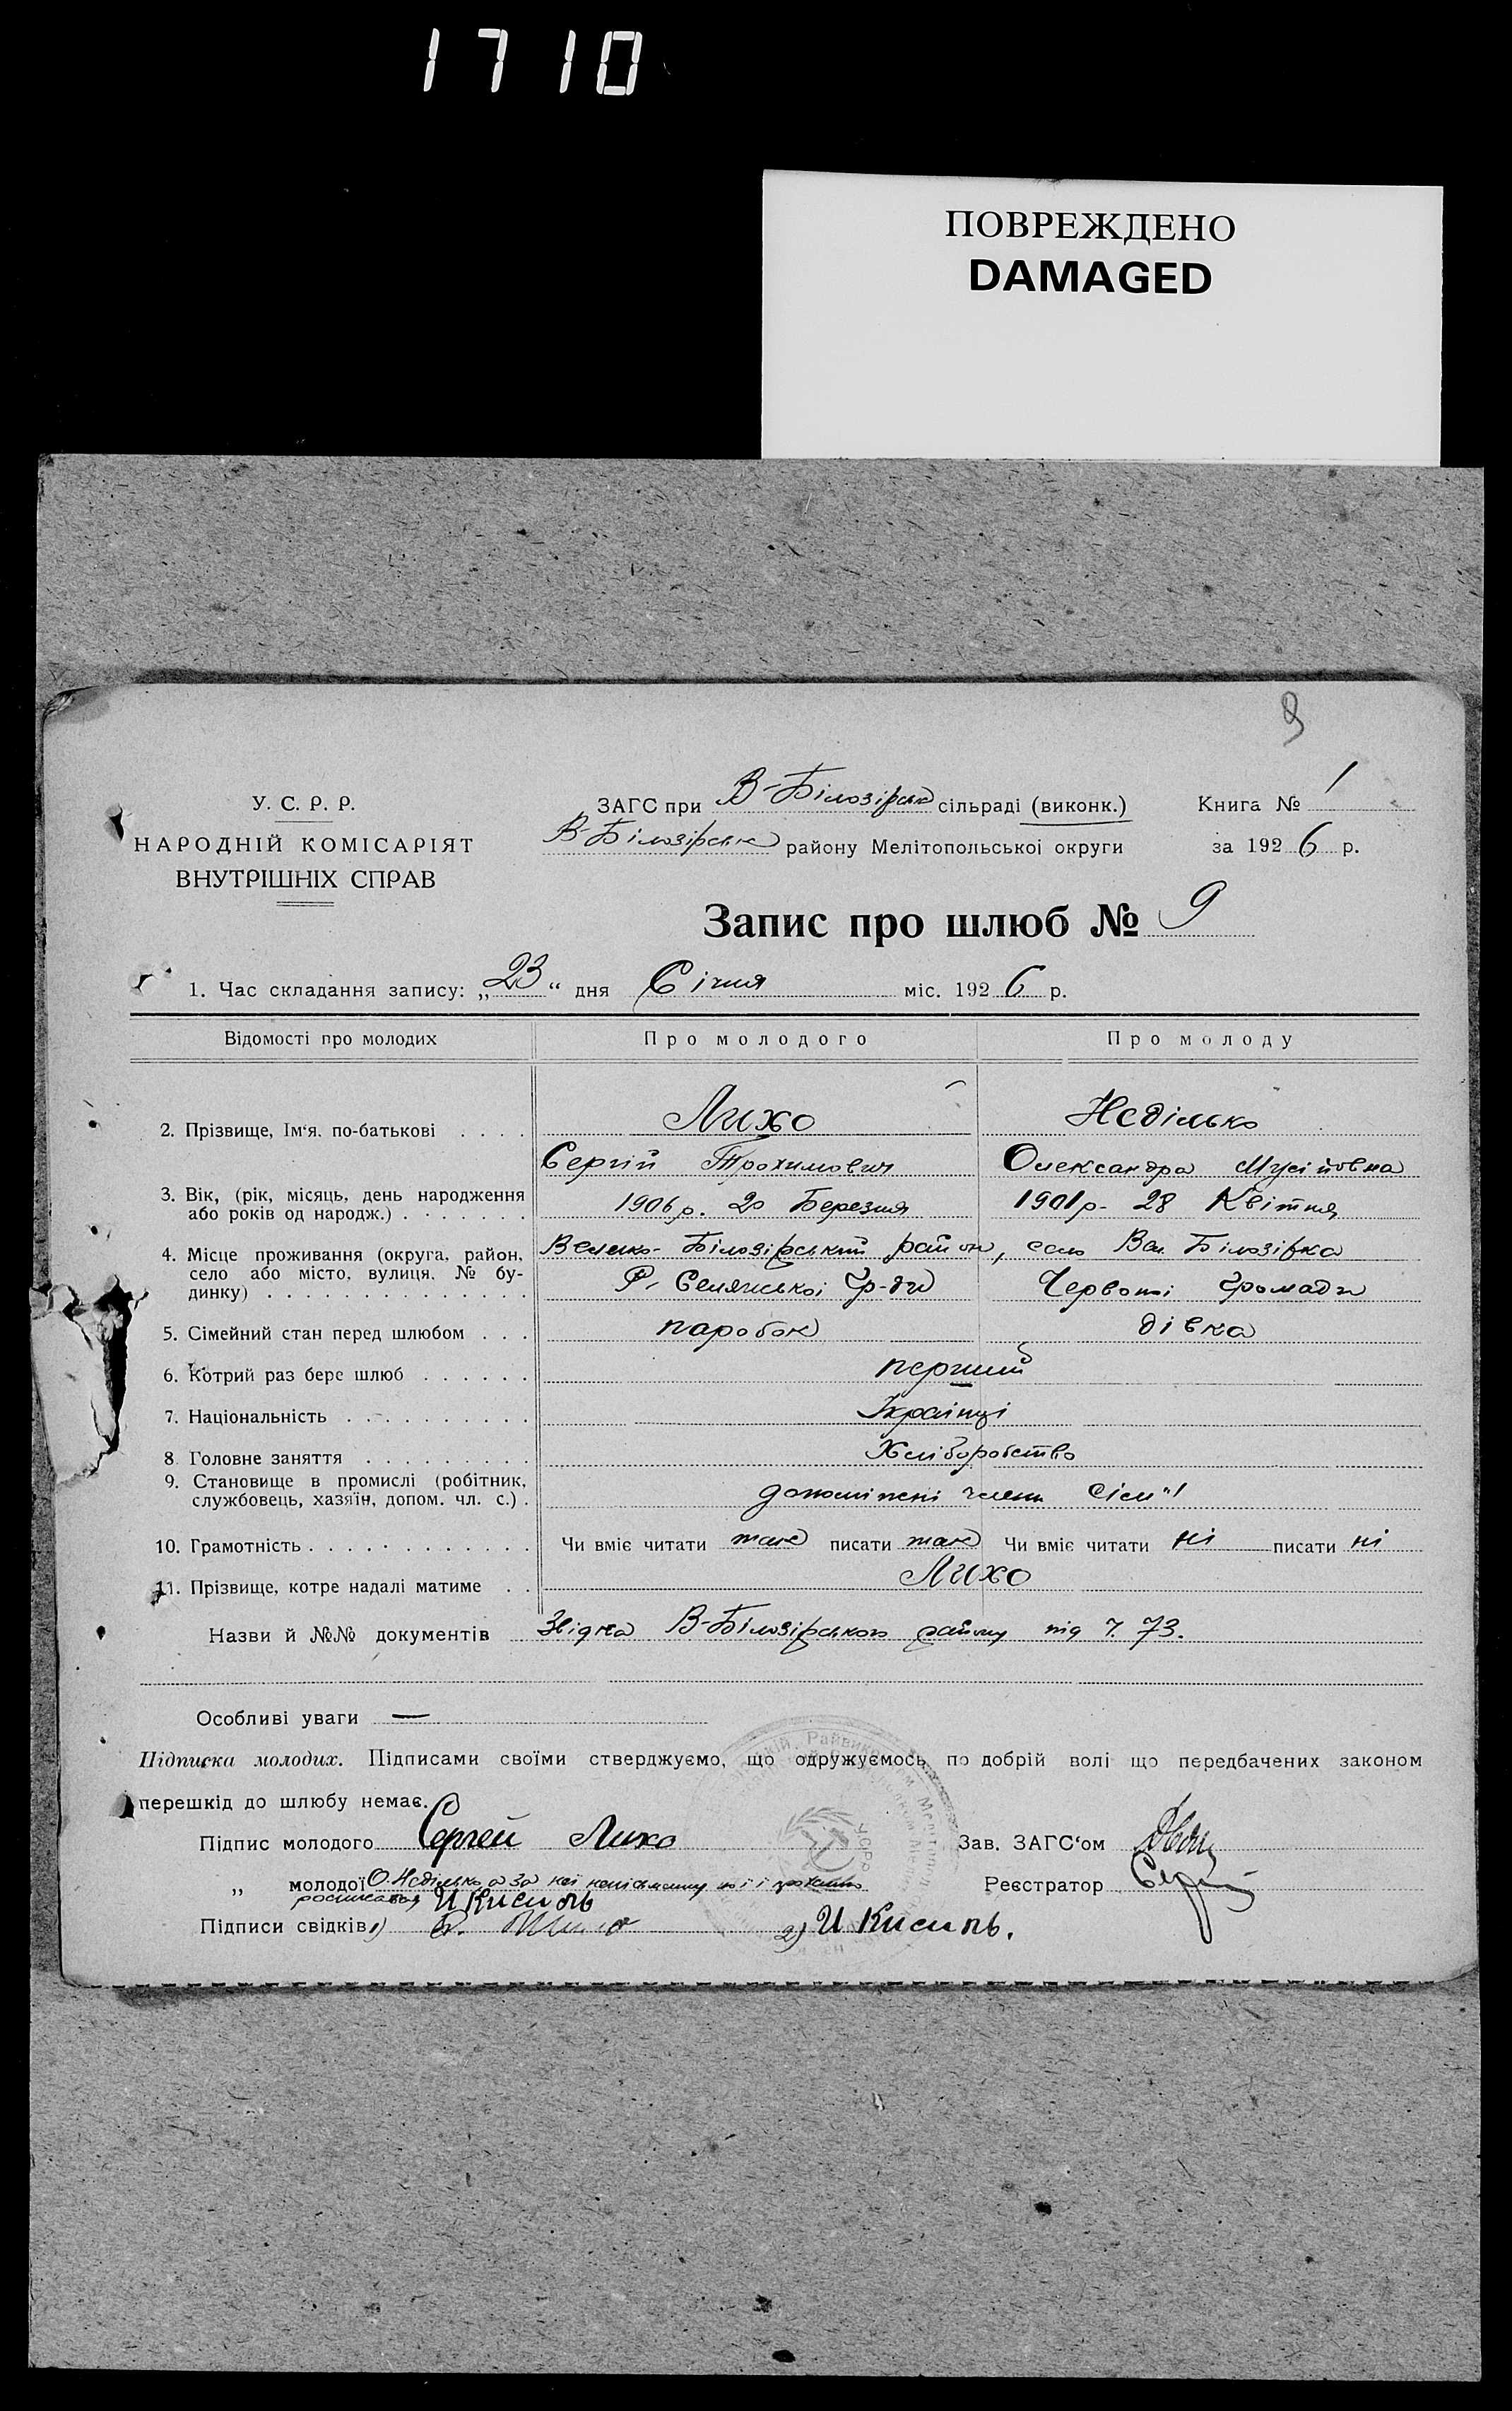 1710
ПОВРЕЖДЕНО
DAMAGED
9
У. С. Р. Р.
НАРОДНІЙ КОМІСАРІЯТ
ВНУТРІШНІХ СПРАВ
ЗАГС при В-Білозірськ сільраді (виконк.) Книга № 1
В-Білозірська району Мелітопольської округи за 1926 р.
Запис про шлюб № 9
1. Час складання запису: „23“ дня Січня міс. 1926 р.
Відомості про молодих Про молодого Про молоду
2. Прізвище, Ім‘я, по-батькові . . . . Лихо Неділько
Сергій Трохимович Олександра Мусіївна
3. Вік, (рік, місяць, день народження
або років од народж.) . . . . . . . 1906 р. 20 Березня 1901 р. 28 Квітня
4. Місце проживання (округа, район, Велико-Білозірський район, село Вел. Білозірка
село або місто, вулиця, № бу-
динку) . . . . . . . . . . . . . . Р. Селянської Гр-ди Червоної Громади
5. Сімейний стан перед шлюбом . . . паробок дівка
6. Котрий раз бере шлюб . . . . . . перший
7. Національність . . . . . . . . . . Українці
8. Головне заняття . . . . . . . . . Хліборобство
9. Становище в промислі (робітник,
службовець, хазяїн, допом. чл. с.) . допоміжні члени сім'ї
10. Грамотність . . . . . . . . . . . . Чи вміє читати так писати так Чи вміє читати ні писати ні
11. Прізвище, котре надалі матиме . . Лихо
Назви й №№ документів Звідка В-Білозірського району під ч. 73.
Особливі уваги —
Підписка молодих. Підписами своїми стверджуємо, що одружуємось по добрій волі що передбачених законом
перешкід до шлюбу немає.
Підпис молодого Сергей Лихо Зав. ЗАГС‘ом
„ молодої О. Неділько, а за неї неписьменну по її проханню Реєстратор
росписався И Кисиль
Підписи свідків 1) 2) И Кисиль.
УСРР